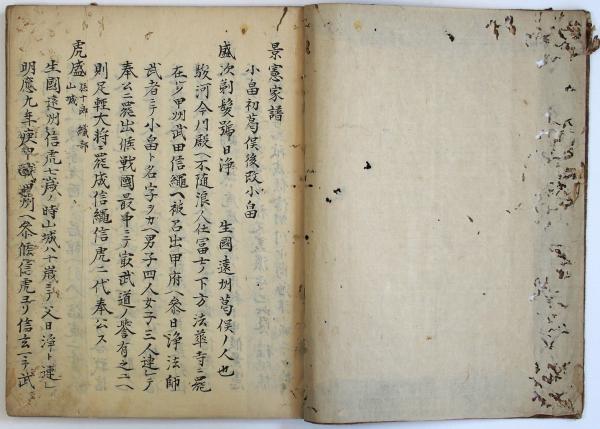 景憲家譜
小畠初葛俣後改小畠
盛次剃髮號日浄　生國遠州葛俣ノ人也
駿河今川殿ヘ不随浪人仕冨士ノ下方法華寺ニ罷
在シヲ甲州武田信繩ヘ被召出甲府ヘ参日浄法師
武者ニテ小畠ト名字ヲカヘ男子四人女子三人連テ
奉公ニ罷出候戦國最中ニテ武道ノ誉有之ニヘ
則足輕大将ニ罷成信繩信虎二代奉公ス
虎盛 孫十郎 織部 山城
生國遠州信虎七歳ノ時山城ハ十歳ニテ父日浄ト連
明應九年庚申歳甲州ヘ参候信虎ヨリ信玄ヘテ武